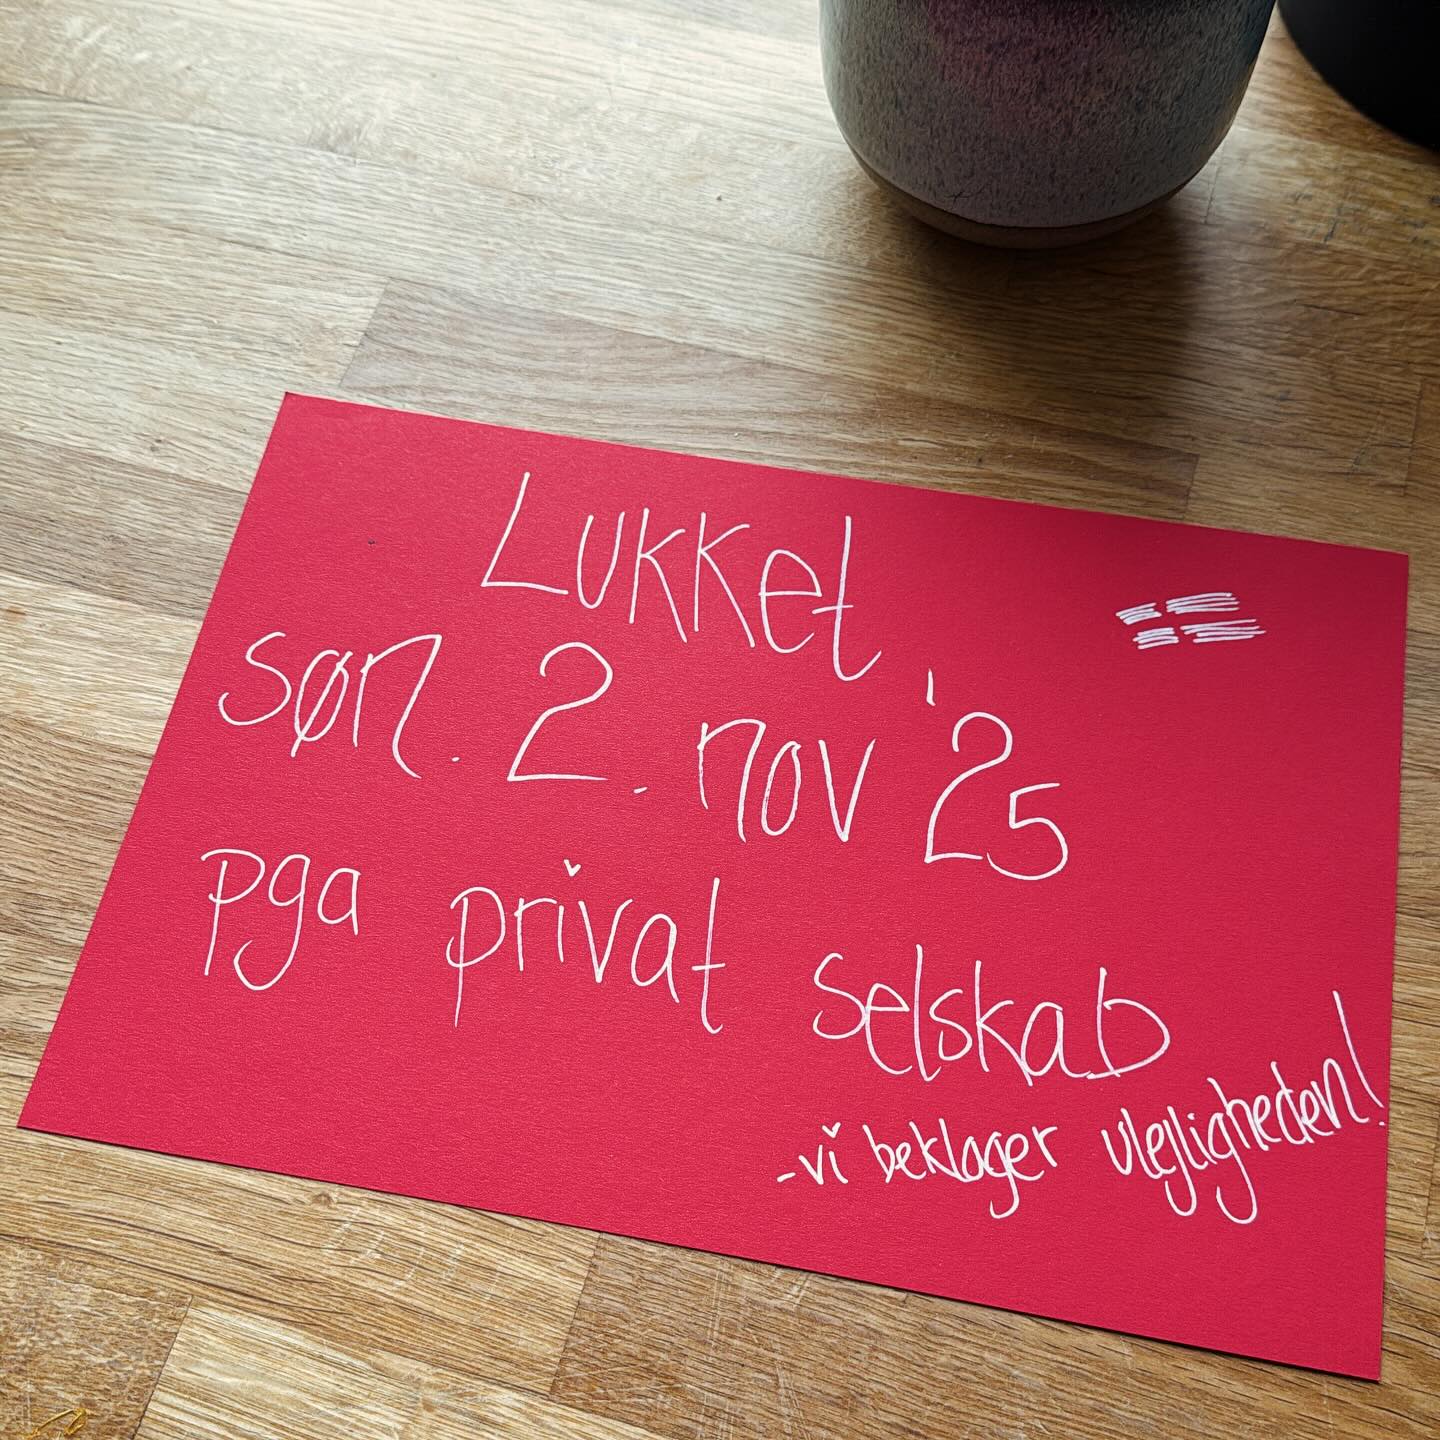 Lukket
søn. 2. nov '25
pga privat selskab
- vi beklager ulejligheden!